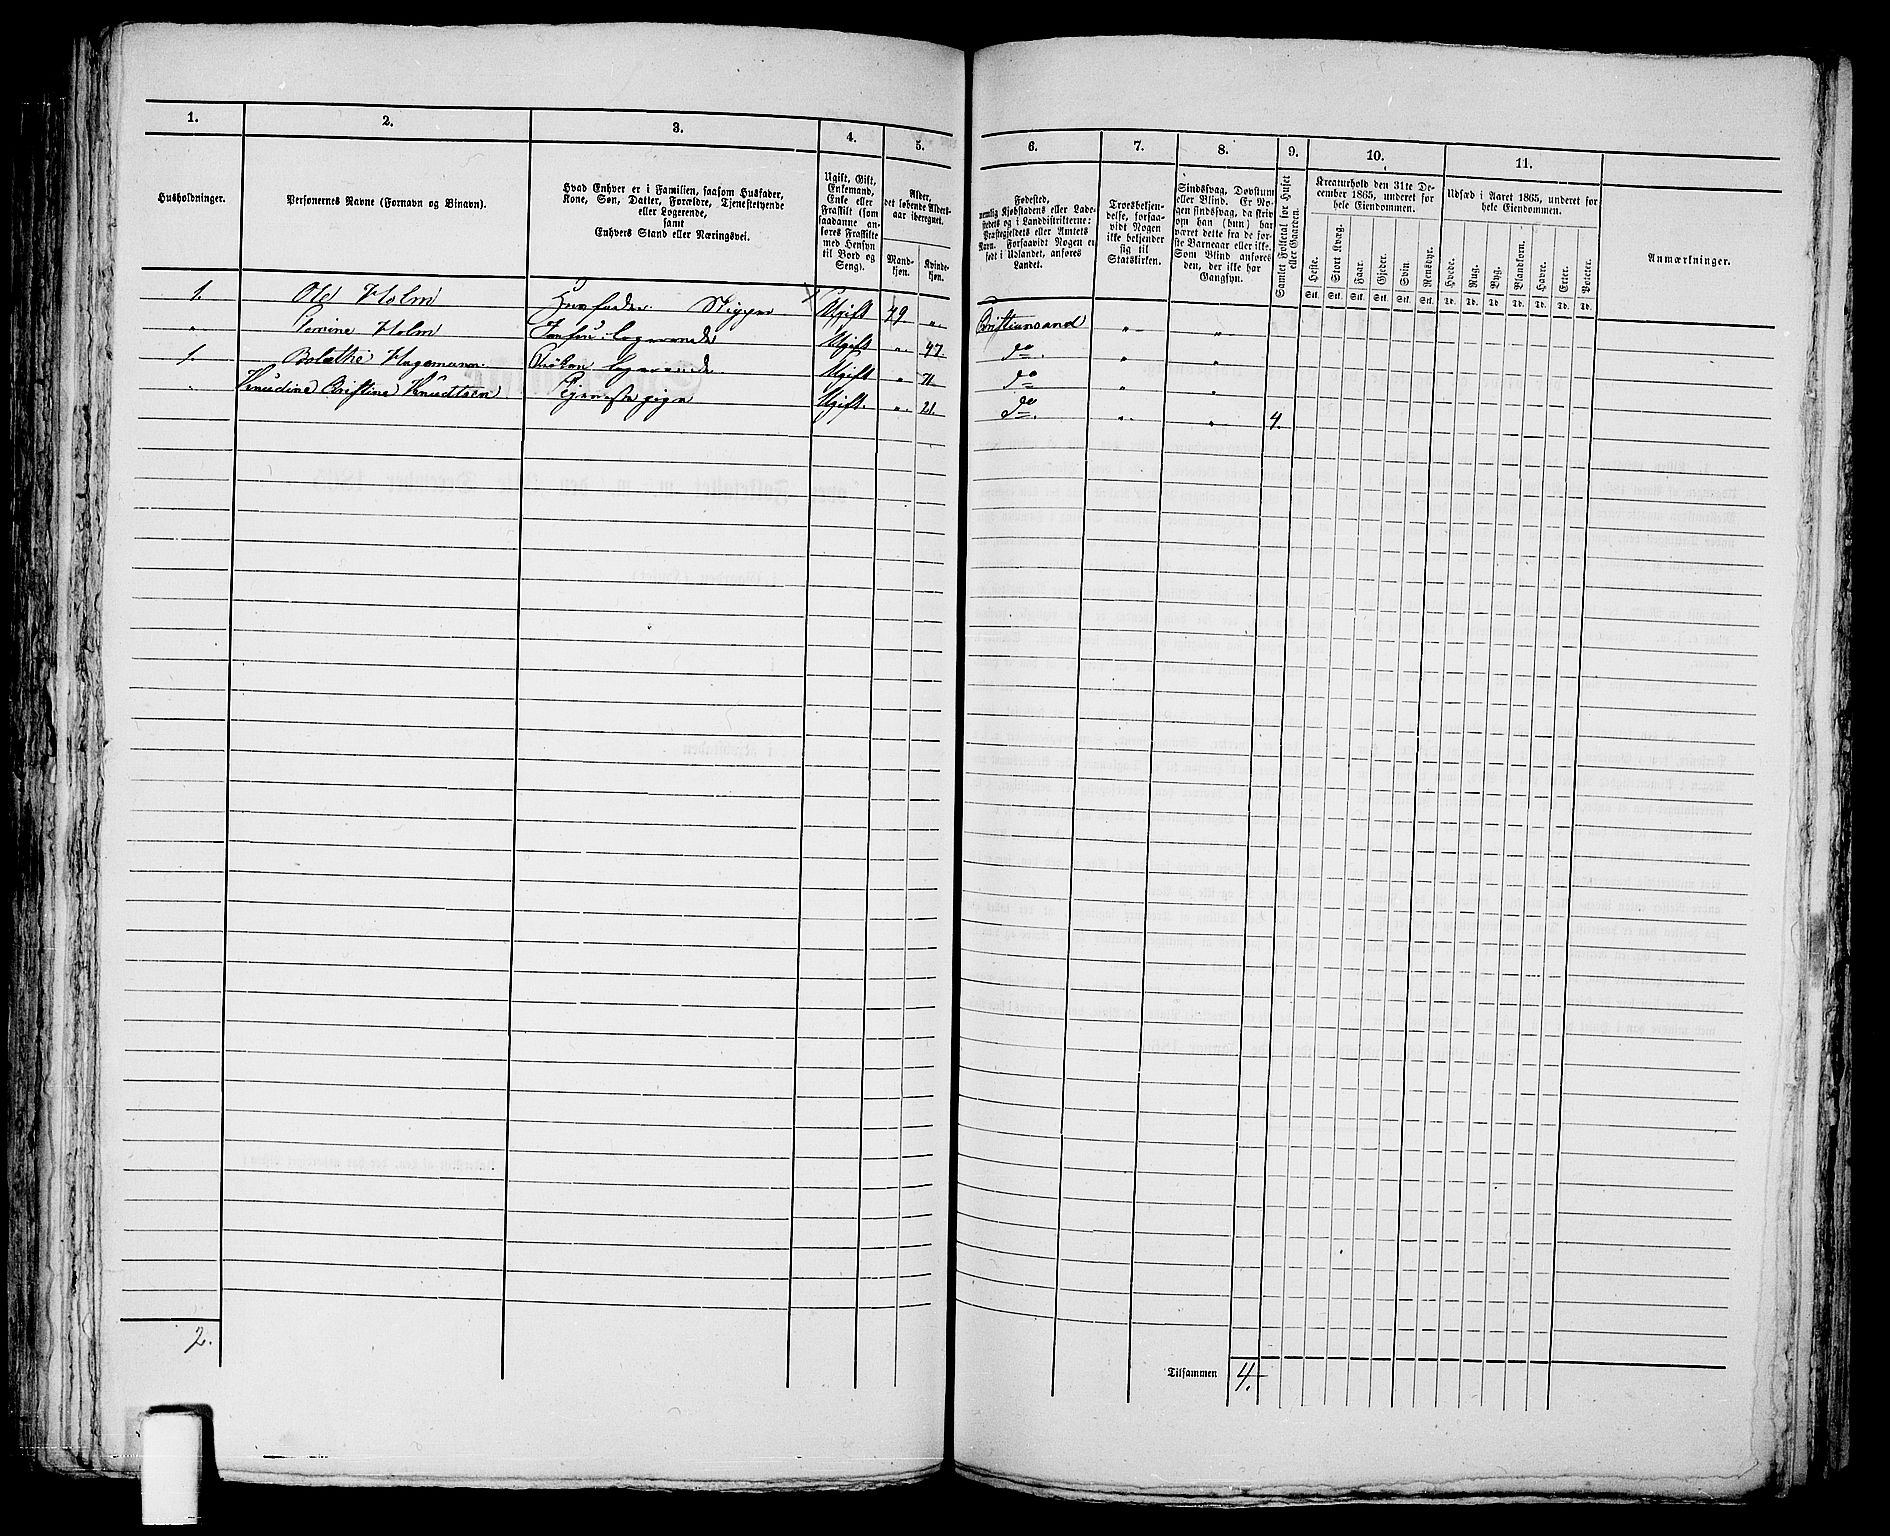 1. 2. 3. 4. 5. 6. 7. 8. 9. 10. 11.
Husholdninger.
Personernes Navne (Fornavn og Binavn).
Hvad Enhver er i Familien, saasom Husfader,
Kone, Søn, Datter, Forældre, Tjenestetyende
eller Logerende,
samt
Enhvers Stand eller Næringsvei.
Ugift, Gift,
Enkemand,
Enke eller
Fraskilt (som
saadanne an-
føres Fraskilte
med Hensyn
til Bord og
Seng).
Alder,
det løbende Alders-
aar iberegnet.
Mand-
kjøn.
Kvinde-
kjøn.
Fødested,
nemlig Kjøbstadens eller Lade-
stedets og i Landdistrikterne:
Præstegjeldets eller Amtets
Navn. Forsaavidt Nogen er
født i Udlandet, anføres
Landet.
Troesbekjen-
delse, forsaa-
vidt Nogen
ikke bekjender
sig til
Statskirken.
Sindssvag, Døvstum
eller Blind. Er No-
gen sindssvag, da skriv
om han (hun) har
været dette fra de før-
ste Barneaar eller ikke.
Som Blind anføres
den, der ikke har
Gangsyn.
Samlet Folketal for Huset
eller Gaarden.
Kreaturhold den 31te De-
cember 1865, underet for
hele Eiendommen.
Heste. Stort Kvæg. Faar. Gjeder. Svin. Rensdyr.
Stk. Stk. Stk. Stk. Stk. Stk.
Udsæd i Aaret 1865, underet for
hele Eiendommen.
Hvede. Rug. Byg. Blandkorn. Havre. Erter. Poteter.
Td. Td. Td. Td. Td. Td. Td.
Anmærkninger.
1. Ole Holm Huusfader. Ugift 49 „ Christiansand „ „
„ Holm Logerende Ugift „ 47. do „ „
1. Bolethe Hagemann. Logerende Ugift „ 71 do „ „
„ Knudine Christine Knudtsen Tjenestepige Ugift. „ 21. do. „ „ 4.
2.
Tilsammen 4.